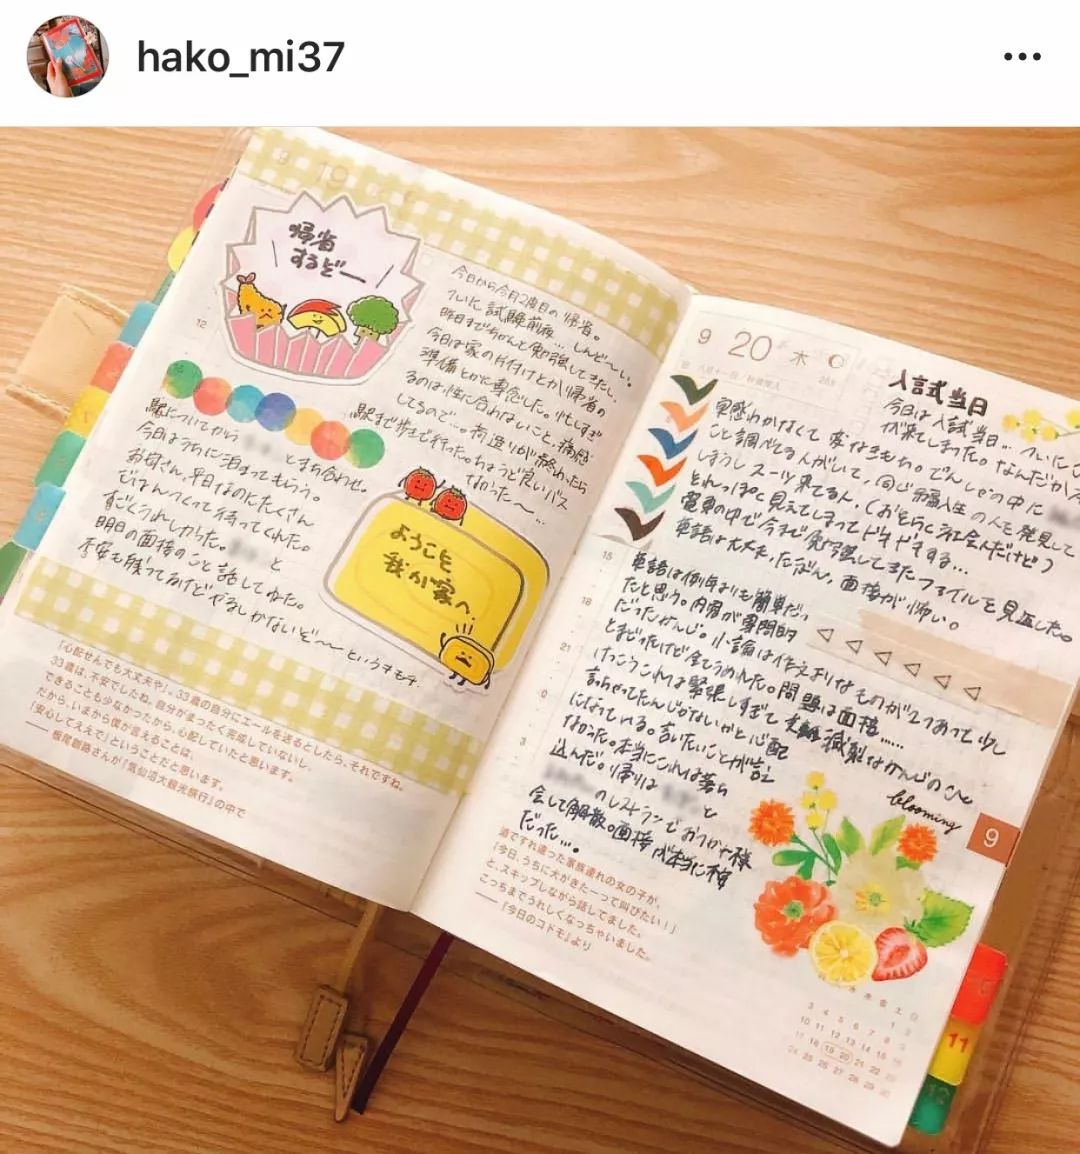 hako_mi37
9 19
帰省
するぞー
今日から今月2度目の帰省。
ついに試験前夜…しんど〜い。
昨日までちゃんと勉強してきたし、
今日は家の片付けとか帰省の
準備とかに専念した。忙しすぎ
るのは性に合わないこと、痛感
してるので…。荷造りが終わったら
駅まで歩きで行った。ちょうど良いバス
なかった〜…
12
15
駅についてから
とまち合わせ。
今日はうちに泊まってもらう。
お母さん、平日なのにたくさん
ごはんつくって待ってくれた。
すごくうれしかった。
と
明日の面接のこと話してねた。
不安も残ってるけどやるしかないぞ〜〜というキモチ
ようこそ
我が家へ。
「心配せんでも大丈夫や」。33歳の自分にエールを送るとしたら、それですね。
33歳は、不安でしたね。自分がまったく完成していないし、
できることも少なかったから、心配していたと思います。
だから、いまから僕が言えることは、
「安心してええで」ということだと思います。
『気仙沼大観光旅行』の中で
9 20 木
入試当日
今日は入試当日…ついにこの日
が来てしまった。なんだか
実感わかなくて変なきもち。でんしゃの中に
こと調べてる人がいて、同じ編入生の人を発見して
しまうし スーツ来てる人、(おそらく社会人だけど)
それっぽく見えてしまってドキドキする…
電車の中で今まで勉強してきたファイルを見直した。
単語は大丈夫、たぶん。面接が怖い。
15
18
21
0
3
単語は例年よりも簡単だっ
たと思う。内容が専門的
だったかんじ。小論は作文よりなものが2つあって少し
とまどったけど全てうめれた。問題は面接……
けっこうこれは緊張しすぎて支離滅裂なかんじのこと
言っちゃってたんじゃないかと心配
になっている。言いたいことが言え
なかった。本当にこれは落ち
込んだ。帰りは
と
のレストランでおつかれ様
会して解散。面接が本当に
だった…。
blooming
9
道ですれ違った家族連れの女の子が、
「今日、うちに犬がきたーって叫びたい!」
と、スキップしながら話してました。
こっちまでうれしくなっちゃいました。
──『今日のコドモ』より
1 2
3 4 5 6 7 8 9
10 11 12 13 14 15 16
17 18 19 20 21 22 23
24 25 26 27 28 29 30
11